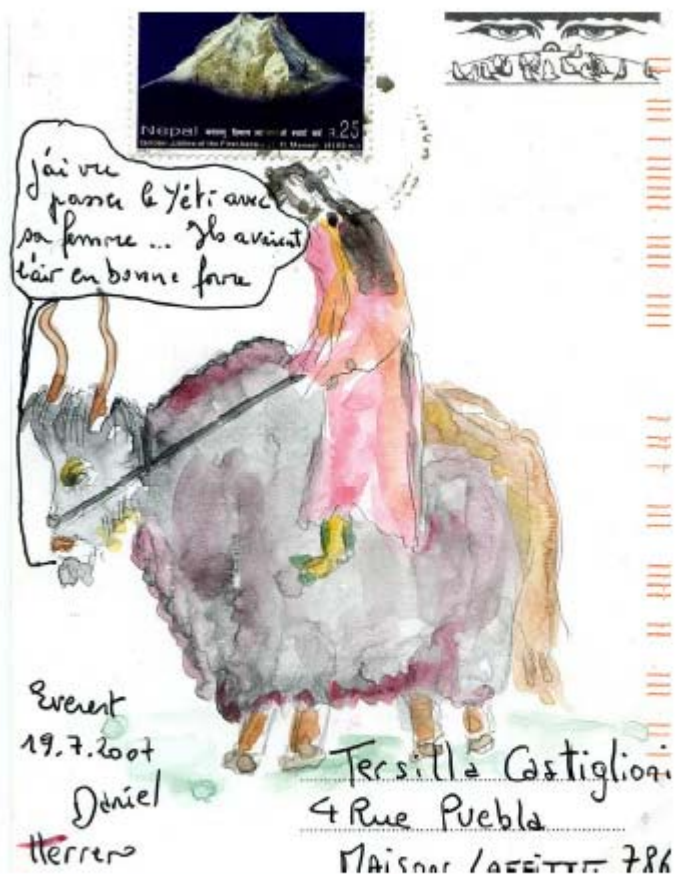 Nepal
25
j'ai vu
passer le Yéti avec
sa femme ... Ils avaient
l'air en bonne forme
Everest
19.7.2007
Daniel
Herrero
Tersilla Castiglioni
4 Rue Puebla
MAISONS LAFFITTE 786